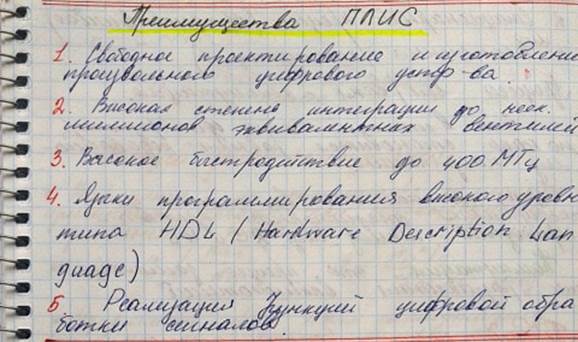 Преимущества ПЛИС
1. Свободное проектирование и изготовление
произвольного цифрового устр-ва.
2. Высокая степень интеграции до неск.
миллионов эквивалентных вентилей
3. Высокое быстродействие до 400 МГц
4. Языки программирования высокого уровн
типа HDL (Hardware Description Lan
guage)
5. Реализация функций цифровой обра
ботки сигналов.